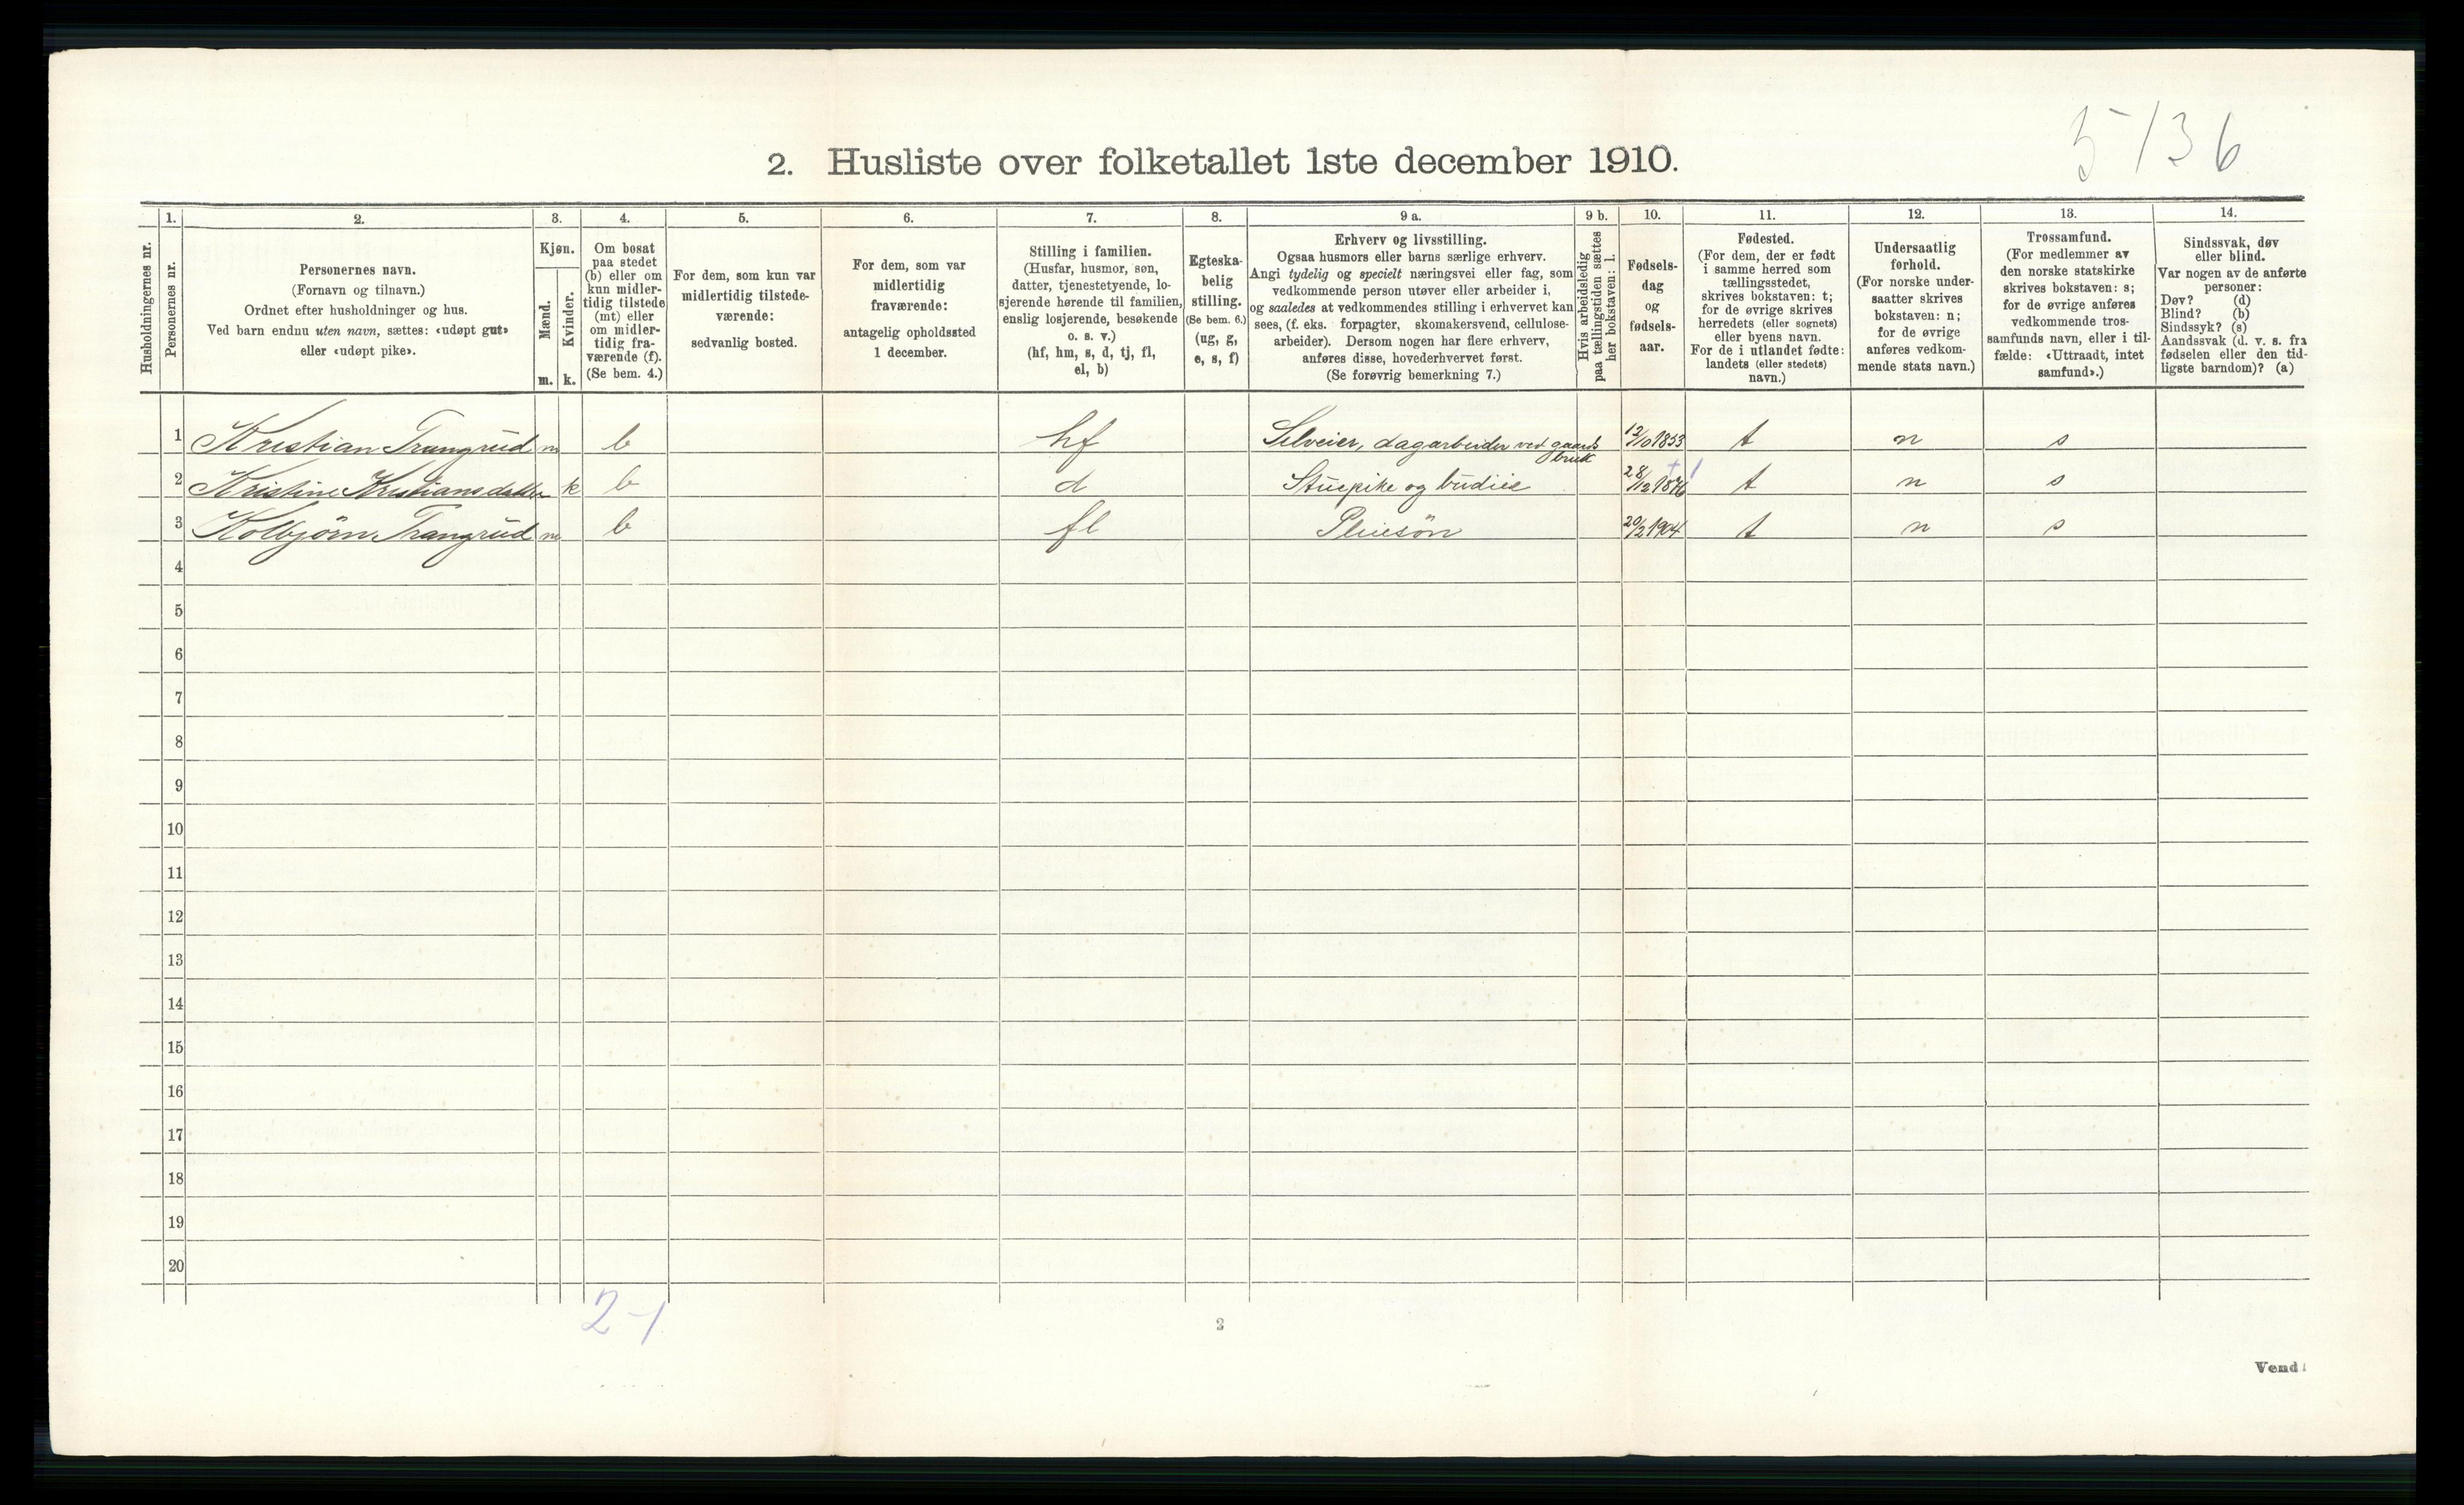 5/36
2. Husliste over folketallet 1ste december 1910.
Husholdningernes nr.
1.
Personernes nr.
2.
Personernes navn.
(Fornavn og tilnavn.)
Ordnet efter husholdninger og hus.
Ved barn endnu uten navn, sættes: «udøpt gut»
eller «udøpt pike».
3.
Kjøn.
Mænd.
Kvinder.
m. k.
4.
Om bosat
paa stedet
(b) eller om
kun midler-
tidig tilstede
(mt) eller
om midler-
tidig fra-
værende (f).
(Se bem. 4.)
5.
For dem, som kun var
midlertidig tilstede-
værende:
sedvanlig bosted.
6.
For dem, som var
midlertidig
fraværende:
antagelig opholdssted
1 december.
7.
Stilling i familien.
(Husfar, husmor, søn,
datter, tjenestetyende, lo-
sjerende hørende til familien,
enslig losjerende, besøkende
o. s. v.)
(hf, hm, s, d, tj, fl,
el, b)
8.
Egteska-
belig
stilling.
(Se bem. 6.)
(ug, g,
e, s, f)
9 a.
Erhverv og livsstilling.
Ogsaa husmors eller barns særlige erhverv.
Angi tydelig og specielt næringsvei eller fag, som
vedkommende person utøver eller arbeider i,
og saaledes at vedkommendes stilling i erhvervet kan
sees, (f. eks. forpagter, skomakersvend, cellulose-
arbeider). Dersom nogen har flere erhverv,
anføres disse, hovederhvervet først.
(Se forøvrig bemerkning 7.)
9 b.
Hvis arbeidsledig
paa tællingstiden sættes
her bokstaven: l.
10.
Fødsels-
dag
og
fødsels-
aar.
11.
Fødested.
(For dem, der er født
i samme herred som
tællingsstedet,
skrives bokstaven: t;
for de øvrige skrives
herredets (eller sognets)
eller byens navn.
For de i utlandet fødte:
landets (eller stedets)
navn.)
12.
Undersaatlig
forhold.
(For norske under-
saatter skrives
bokstaven: n;
for de øvrige
anføres vedkom-
mende stats navn.)
13.
Trossamfund.
(For medlemmer av
den norske statskirke
skrives bokstaven: s;
for de øvrige anføres
vedkommende tros-
samfunds navn, eller i til-
fælde: «Uttraadt, intet
samfund».)
14.
Sindssvak, døv
eller blind.
Var nogen av de anførte
personer:
Døv? (d)
Blind? (b)
Sindssyk? (s)
Aandssvak (d. v. s. fra
fødselen eller den tid-
ligste barndom)? (a)
1 Kristian Trangrud m b hf Selveier, dagarbeider ved gaards bruk 12/10 1853 t n s
2 Kristine Kristiansdatter k b d Stuepike og budeie 28/12 1876 t n s
3 Kolbjörn Trangrud m b fl Pleiesön 20/2 1904 t n s
4
5
6
7
8
9
10
11
12
13
14
15
16
17
18
19
20
2-1
2
Vend!